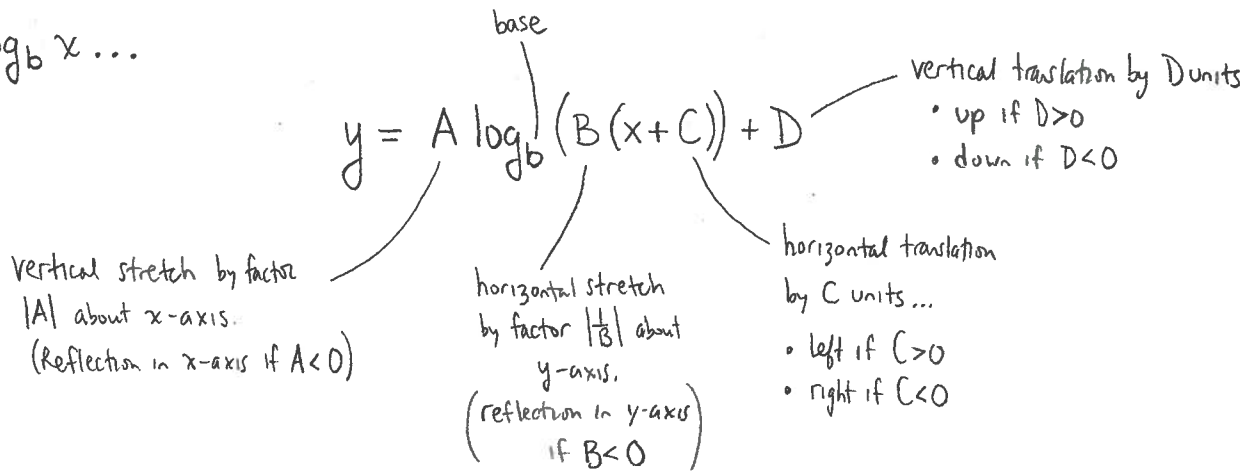 log_b x ...
base
y = A log_b (B(x+C)) + D
vertical translation by D units
• up if D>0
• down if D<0
vertical stretch by factor
|A| about x-axis.
(Reflection in x-axis if A<0)
horizontal stretch
by factor |1/B| about
y-axis.
(reflection in y-axis
if B<0)
horizontal translation
by C units...
• left if C>0
• right if C<0